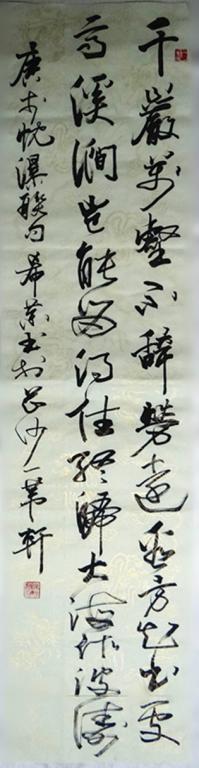 千巖萬壑不辭勞遠看方知出處
高溪澗豈能留得住終歸大海作波濤
唐李忱瀑聯句 希書於長沙一葦軒